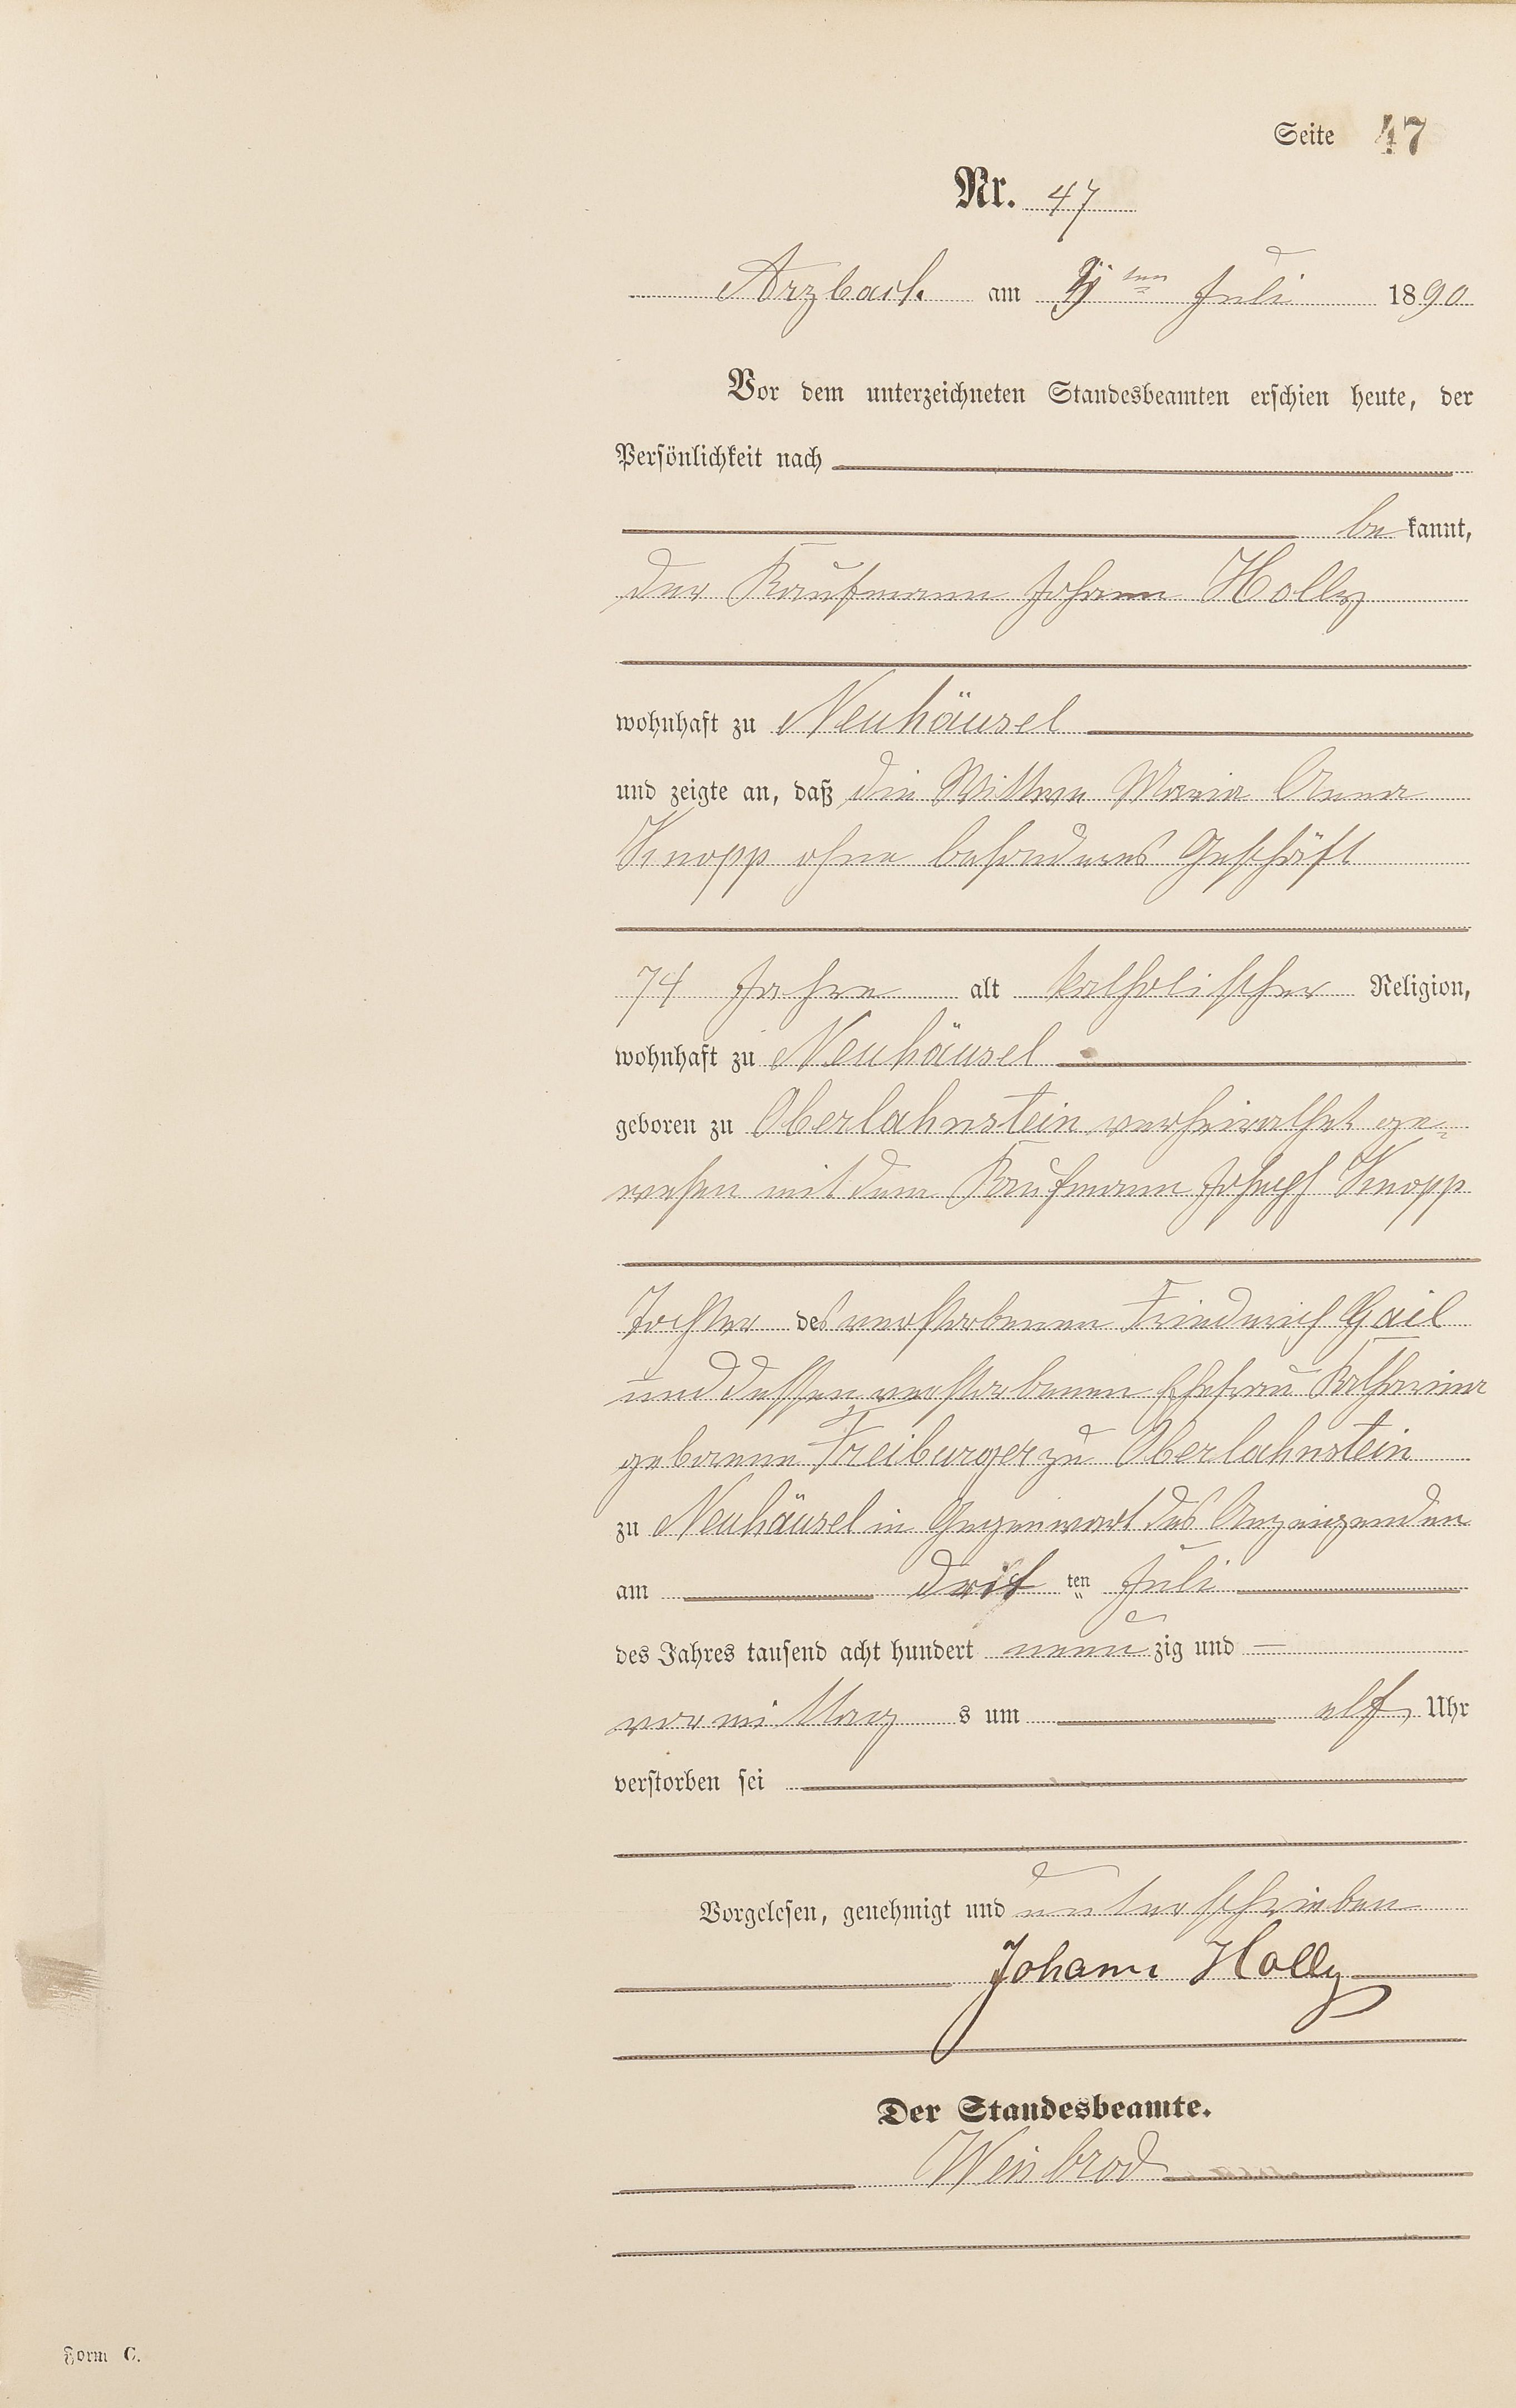 Seite 47
Nr. 47
Arzbach am ten Juli 1890
Vor dem unterzeichneten Standesbeamten erschien heute, der
Persönlichkeit nach
be kannt,
der Kaufmann Johann Holly
wohnhaft zu Neuhäusel
und zeigte an, daß die Wittwe Maria Anna
Knopp ohne besonderes Geschäft
74 Jahre alt katholischer Religion,
wohnhaft zu Neuhäusel
geboren zu Oberlahnstein verheirathet ge-
wesen mit dem Kaufmann Joseph Knopp
Tochter des verstorbenen Friedrich Gail
und dessen verstorbenen Ehefrau Katharina
geborene Freiburger zu Oberlahnstein
zu Neuhäusel in Gegenwart des Anzeigenden
am drit ten Juli
des Jahres tausend acht hundert neun zig und —
vormittag s um elf Uhr
verstorben sei
Vorgelesen, genehmigt und unterschrieben
Johann Holly
Der Standesbeamte.
Weinbrod
Form C.